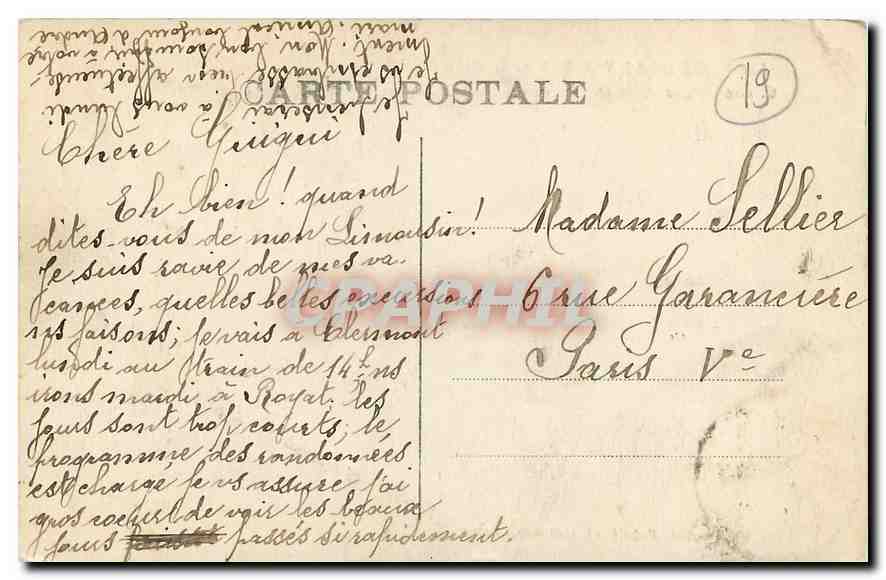 CARTE POSTALE
19
Chère Guigui
Eh bien! quand
dites-vous de mon Limousin!
Je suis ravie de mes va-
cances, quelles belles excursions
ns faisons; je vais à Clermont
lundi au train de 14h ns
irons mardi à Royat. les
jours sont trop courts; le
programme des randonnées
est chargé je vs assure j'ai
gros coeur de voir les beaux
jours passés si rapidement.
Je penserai à vous lundi
Je vs embrasse bien affectueuse-
ment. Mon bon souvenir à votre
mari. Amical bonjour d'André
Madame Sellier
6 rue Garancière
Paris Ve
CPAPHIL